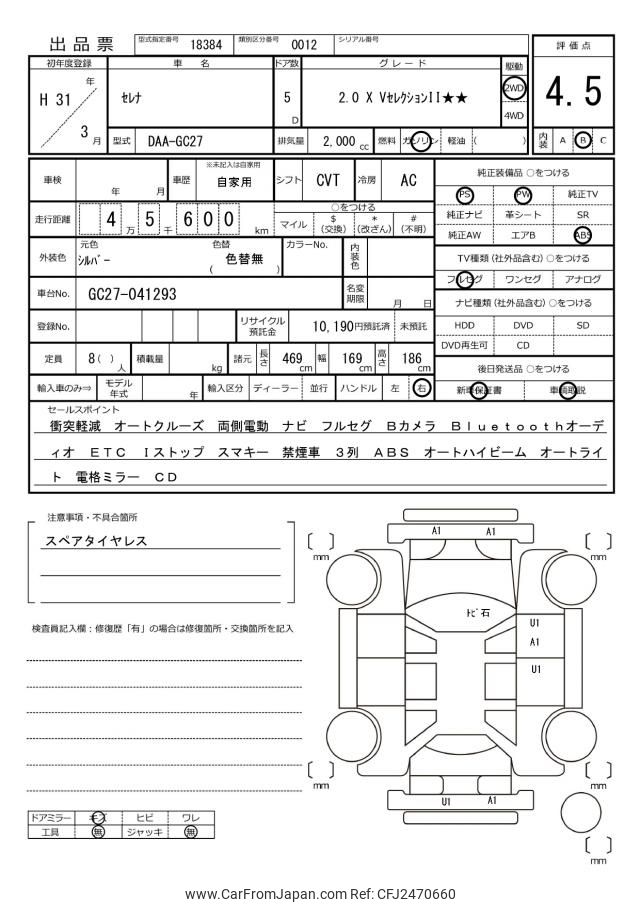 出品票 型式指定番号 18384 類別区分番号 0012 シリアル番号
評価点
4.5
内装 A B C
初年度登録 車名 ドア数 グレード 駆動
H 31 年 3 月 セレナ 5 D 2.0 X VセレクションII★★ 2WD 4WD
型式 DAA-GC27 排気量 2,000 cc 燃料 ガソリン 軽油 ( )
車検 年 月 車歴 ※未記入は自家用 自家用 シフト CVT 冷房 AC
走行距離 4 万 5 千 6 0 0 km
○をつける
マイル $ (交換) * (改ざん) # (不明)
外装色 元色 シルバー 色替 ( 色替無 ) カラーNo. 内装色
車台No. GC27-041293 名変期限 月 日
登録No. リサイクル預託金 10,190円預託済 未預託
定員 8 ( ) 人 積載量 kg 諸元 長さ 469 cm 幅 169 cm 高さ 186 cm
輸入車のみ⇒ モデル年式 年 輸入区分 ディーラー 並行 ハンドル 左 右
純正装備品 ○をつける
PS PW 純正TV
純正ナビ 革シート SR
純正AW エアB ABS
TV種類 (社外品含む) ○をつける
フルセグ ワンセグ アナログ
ナビ種類 (社外品含む) ○をつける
HDD DVD SD
DVD再生可 CD
後日発送品 ○をつける
新車保証書 車輌取説
セールスポイント
衝突軽減 オートクルーズ 両側電動 ナビ フルセグ Bカメラ Bluetoothオーデ
ィオ ETC Iストップ スマキー 禁煙車 3列 ABS オートハイビーム オートライ
ト 電格ミラー CD
注意事項・不具合箇所
スペアタイヤレス
検査員記入欄:修復歴「有」の場合は修復箇所・交換箇所を記入
ドアミラー キズ ヒビ ワレ
工具 無 ジャッキ 無
A1 A1
mm mm
トビ石
U1
A1
U1
mm mm
U1 A1
mm
www.CarFromJapan.com Ref: CFJ2470660